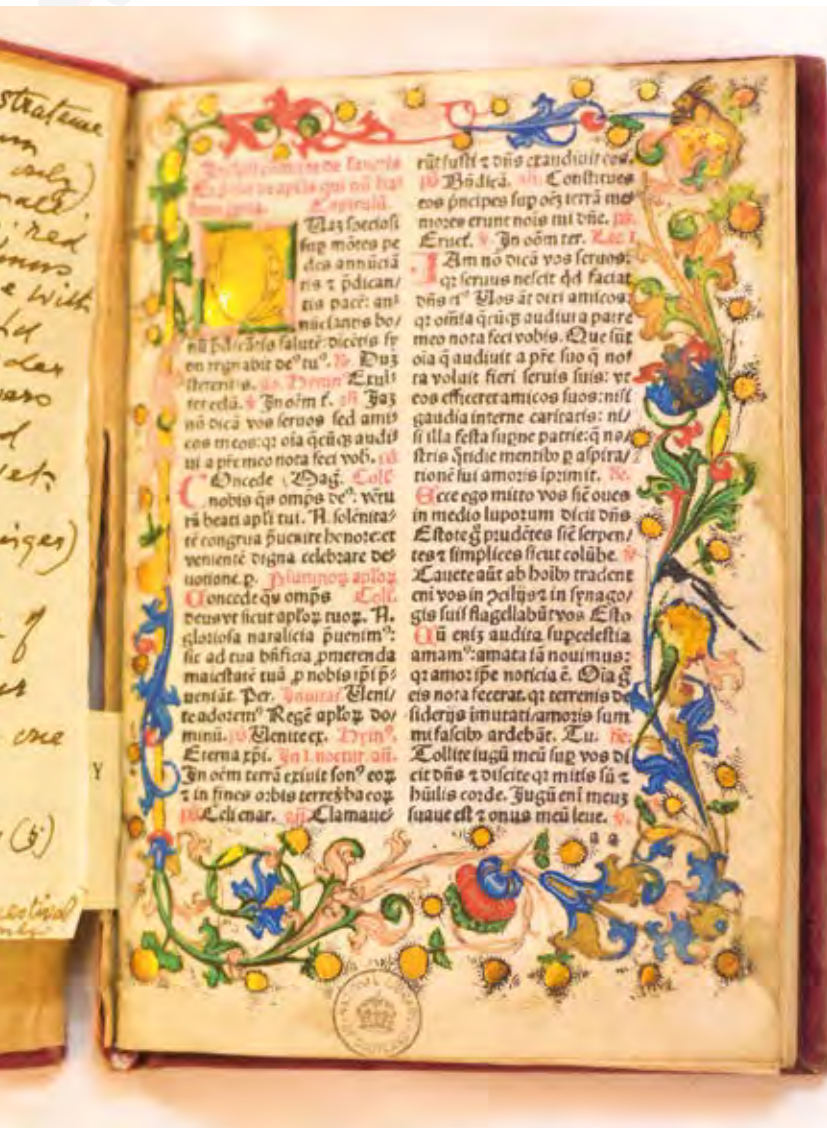 stratueue
only)
red
e with
nd
der
d
(5)
Y
Incipit cōmune de sanctis
Et primo de aplīs qui nō ha
bent ꝓpria. Capitulū.
Uaꝫ speciosi
sup mōtes pe
des annūciā
tis ⁊ p̄dican/
tis pacē: an/
nūciantis bo/
nū p̄dicātis salutē: dicētis sy
on regnabit deꝰ tuꝰ. Duꝫ
steteritis. Exul
tet celū. In oēm t. Iaꝫ
nō dicā vos seruos sed ami
cos meos: qꝛ oīa q̄cūqꝫ audi
ui a pr̄e meo nota feci vob.
COncede Mag. Coll
nobis q̄s omp̄s deꝰ: vētu
rā beati apl̄i tui. N. solēnita/
tē congrua p̄uenire honore: et
veniente digna celebrare de/
uotione. p. Plurimoꝝ aploꝝ
Concede q̄s omp̄s Coll.
deus vt sicut aploꝝ tuoꝝ. N.
gloriosa natalicia p̄uenimꝰ:
sic ad tua bn̄ficia ꝓmerenda
maiestatē tuā ꝓ nobis ip̄i p̄/
ueniāt. Per. Inuitat. Ueni/
te adoremꝰ Regē aploꝝ do/
minū. ps Uenite ex. Hymꝰ.
Eterna xp̄i. In I. noctur. añ.
In oēm terrā exiuit sonꝰ eoꝝ
⁊ in fines orbis terre v̓ba eoꝝ
ps Celi enar. añ Clamaue/
rūt iusti ⁊ dn̄s exaudiuit eos.
ps Bn̄dicā. añ. Constitues
eos p̄ncipes sup oēꝫ terrā me/
mores erunt nois tui dn̄e. ps.
Eruct. v. In oēm ter. Lec. I
IAm nō dicā vos seruos:
qꝛ seruus nescit qd faciat
dn̄s eiꝰ Uos āt dixi amicos:
qꝛ om̄ia q̄cūqꝫ audiui a patre
meo nota feci vobis. Que sūt
oīa q̄ audiuit a pr̄e suo q̄ no/
ta voluit fieri seruis suis: vt
eos efficeret amicos suos: nisi
gaudia interne caritatis: ni/
si illa festa supne patrie: q̄ no/
stris q̄tidie mentibꝰ ꝑ aspira/
tionē sui amoris īprimit. Re.
Ecce ego mitto vos sic̄ oues
in medio luporum dicit dn̄s
Estote g̊ prudētes sic̄ serpen/
tes ⁊ simplices sicut colūbe. v
Cauete aūt ab hoībꝰ tradent
eni vos in ꝯcilijs ⁊ in synago/
gis suis flagellabūt vos Esto
Cū eniꝫ audita supcelestia
amamꝰ: amata iā nouimus:
qꝛ amor ipse noticia ē. Oīa g̊
eis nota fecerat. qꝛ a terrenis de
siderijs imutati amoris sum
mi facibꝰ ardebāt. Tu. Re.
Tollite iugū meū sup vos di
cit dn̄s ⁊ discite qꝛ mitis sū ⁊
hūilis corde. Iugū eni meuꝫ
suaue est ⁊ onus meū leue. v.
a a